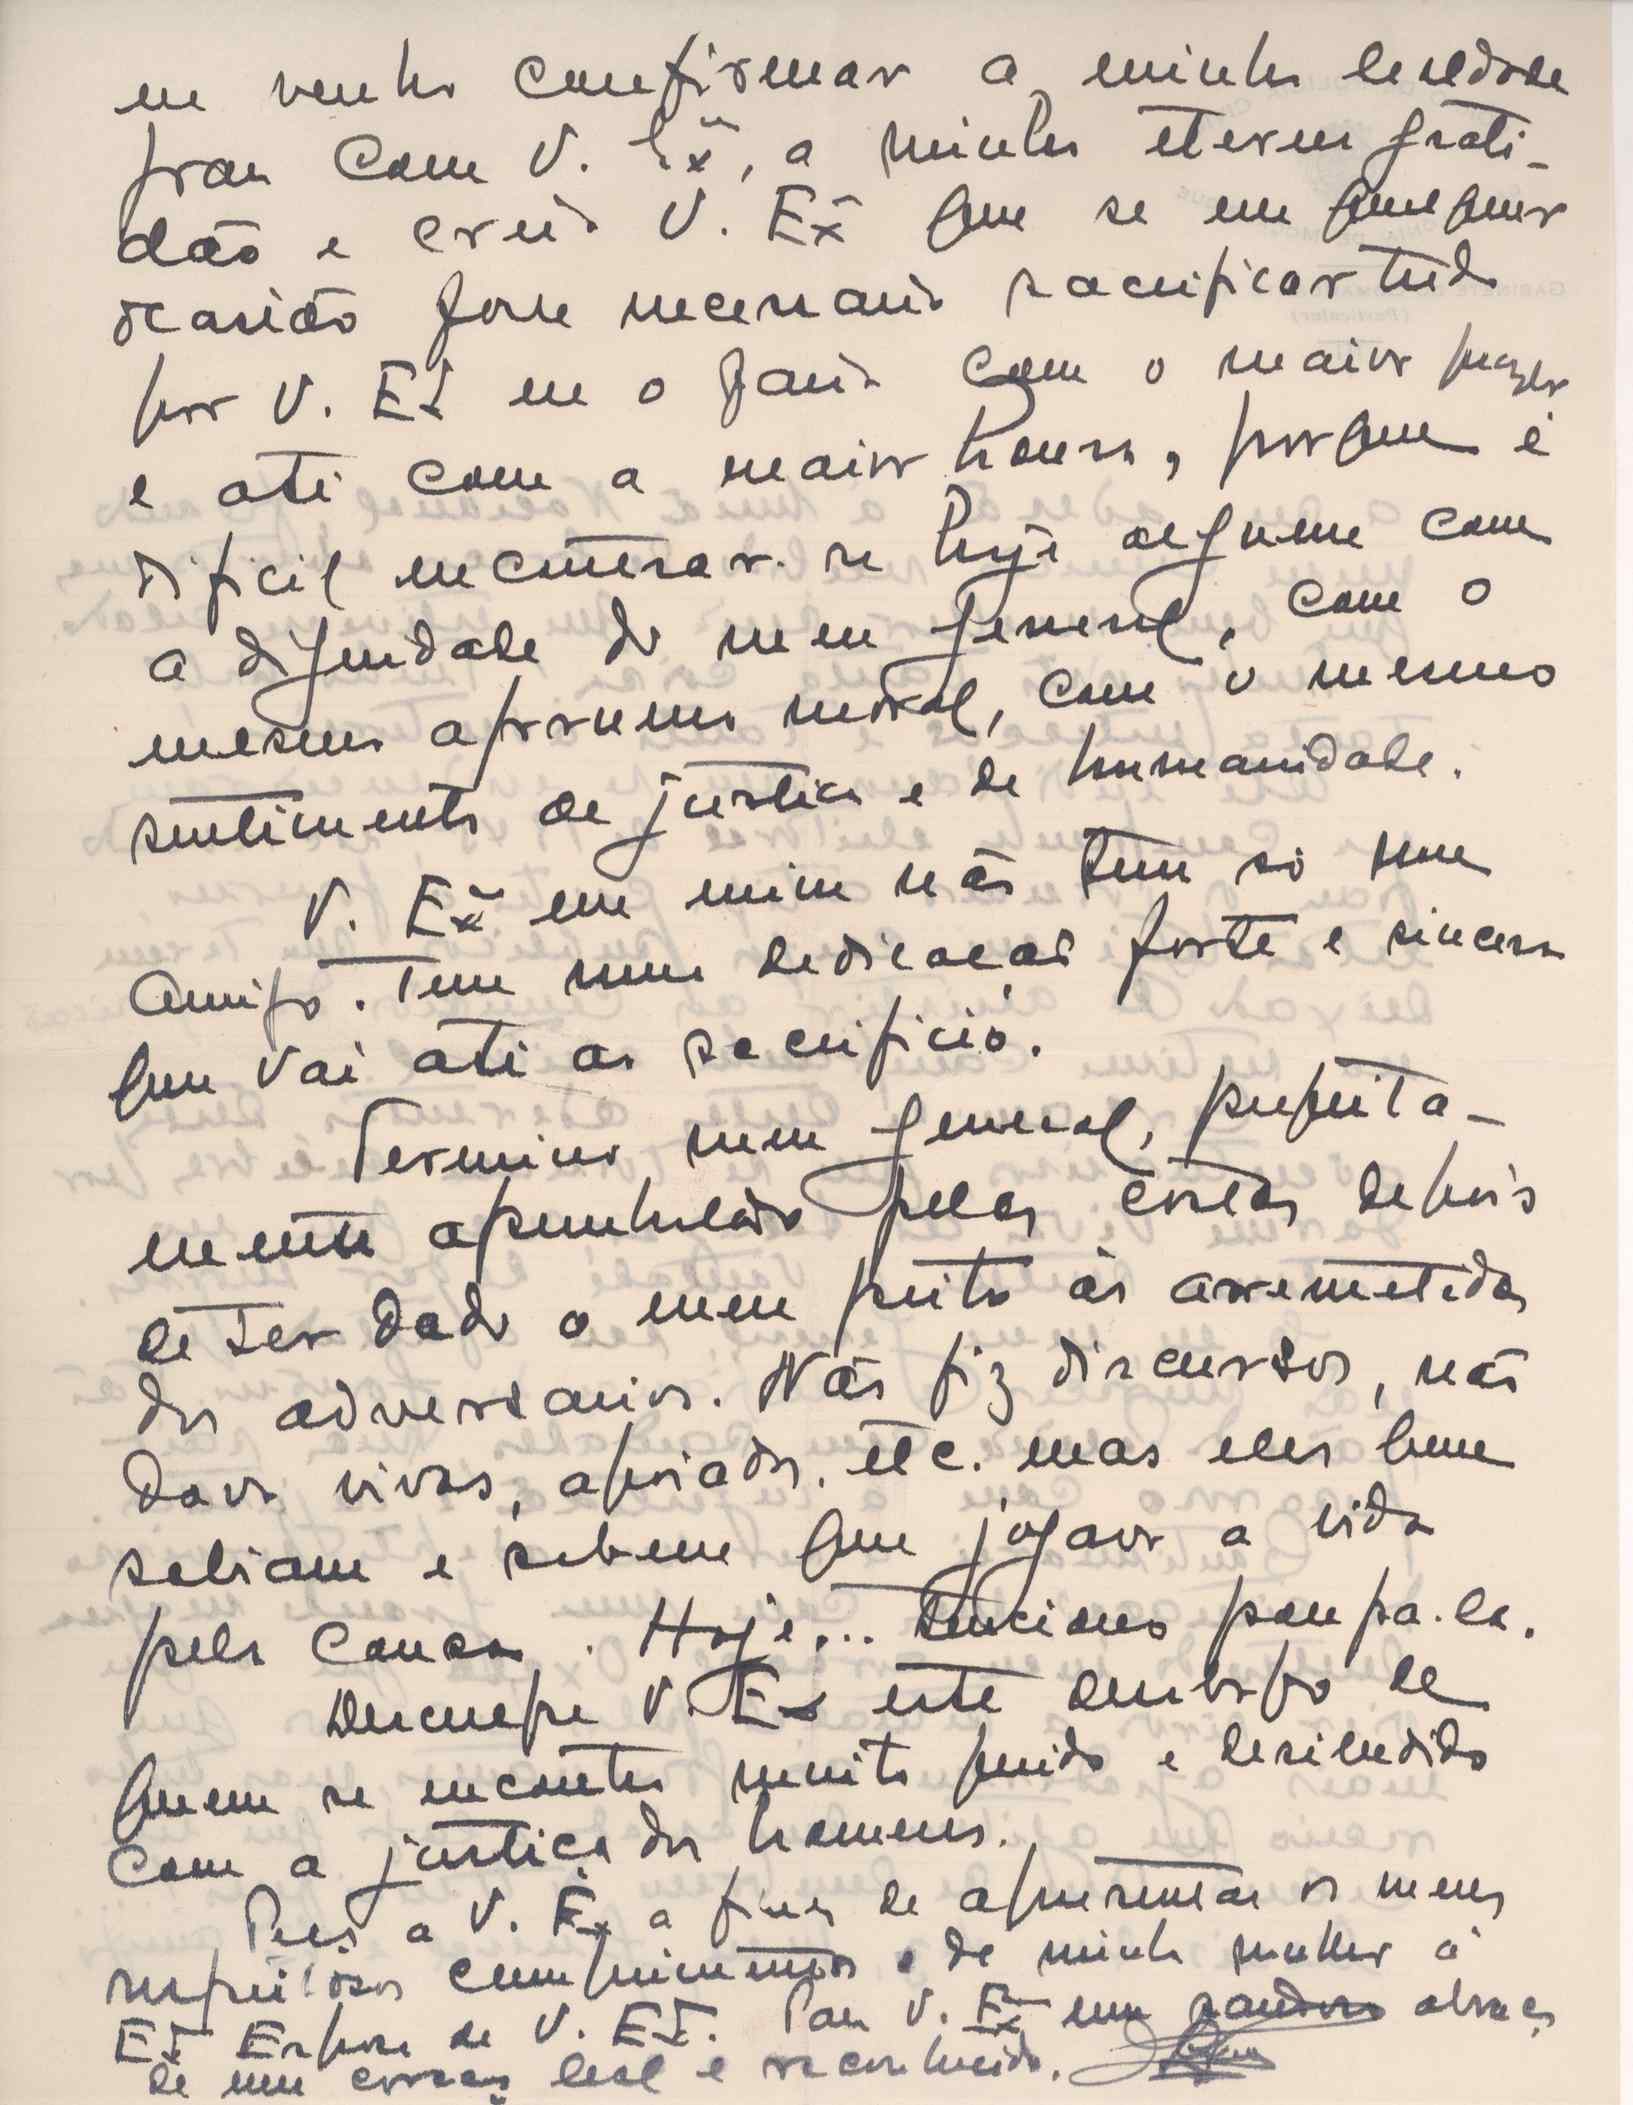 eu venho confirmar a minha lealdade
para com V. Exª, a minha eterna grati-
dão e creia V. Exª que se em qualquer
ocasião fosse necessario sacrificar tudo
por V. Exª eu o faria com o maior prazer
e até com a maior honra, porque é
dificil encontrar-se hoje alguem com
a dignidade do meu general, com o
mesmo aprumo moral, com o mesmo
sentimento de justica e de humanidade.
V. Exª em mim não tem só um
amigo. Tem uma dedicação forte e sincera
que vai até ao sacrificio.
Termino meu general, perfeita-
mente apunhalado pelas costas depois
de ter dado o meu peito ás arremetidas
dos adversarios. Não fiz discursos, não
dava vivas, apoiados, etc. mas eles bem
sabiam e sabem que jogava a vida
pela causa. Hoje... tenciono poupa-la.
Desculpe V. Exª este desabafo de
quem se encontra muito ferido e desiludido
com a justiça dos homens.
Peço a V. Exª a fineza de apresentar os meus
respeitosos cumprimentos e de minha mulher á
Exª Esposa de V. Exª. Para V. Exª um abraço
de um coração leal e reconhecido.